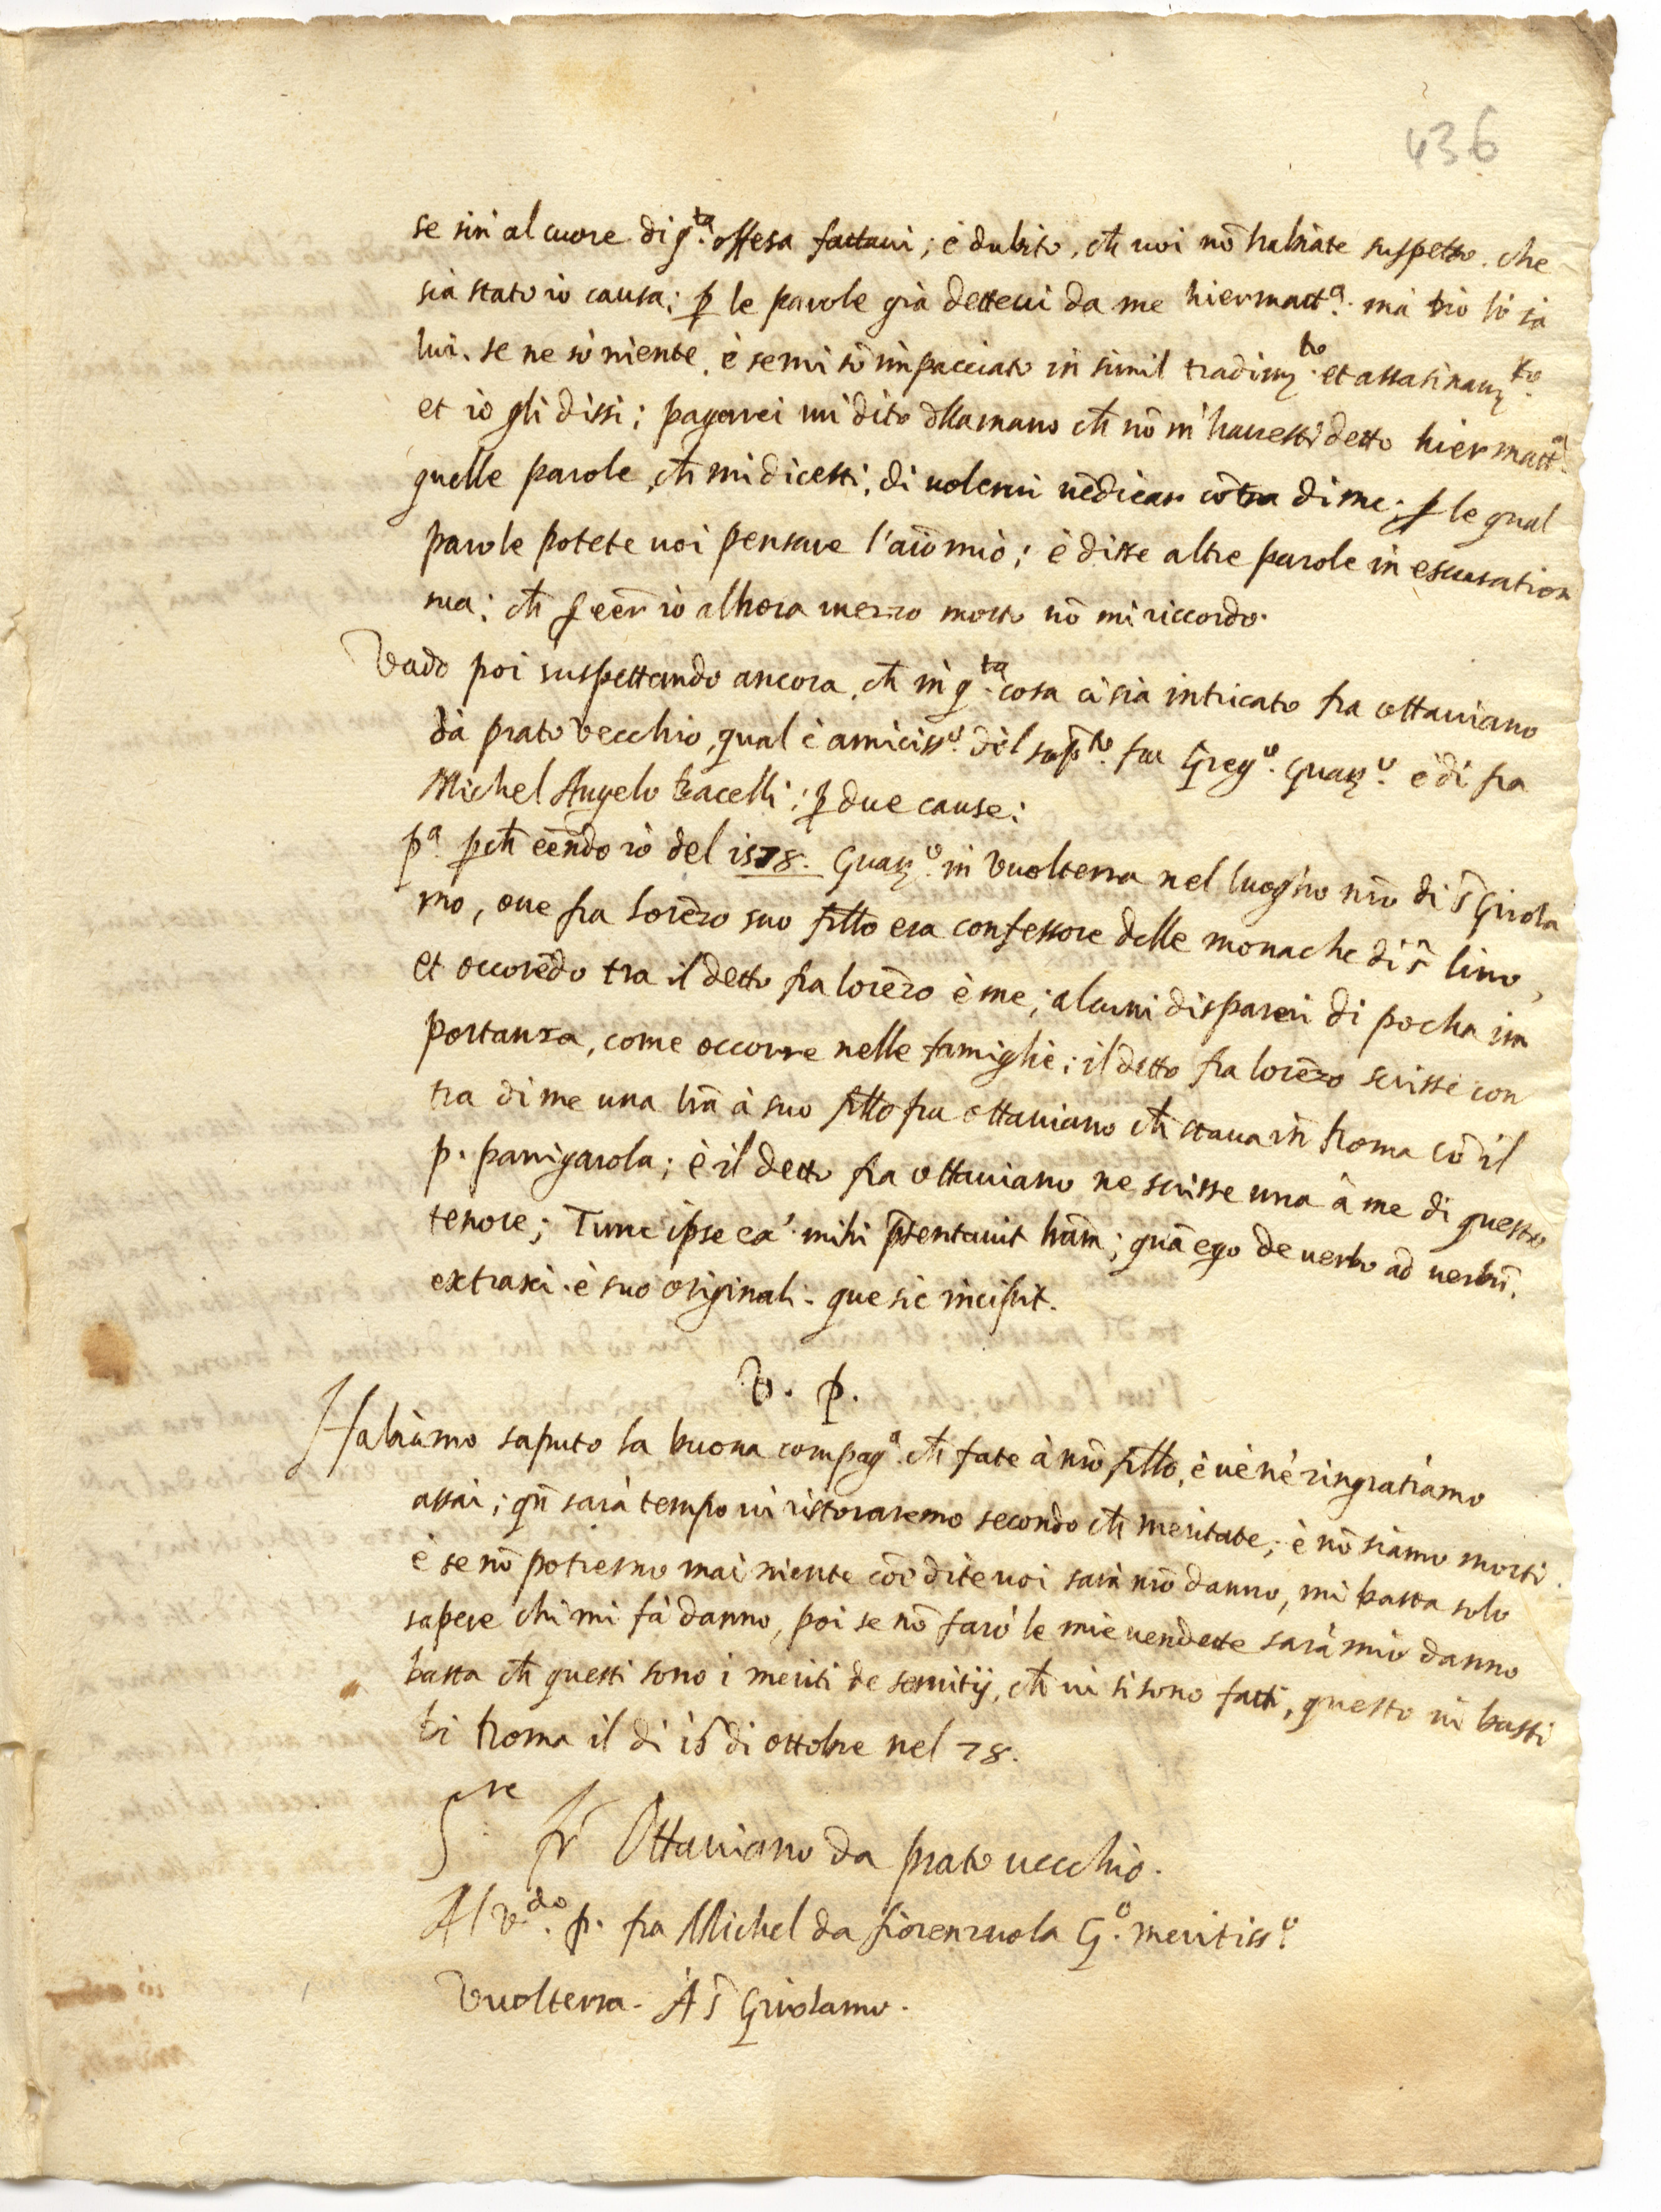 436
se sin al cuore di q.ta offesa fattavi; è dubito, ch̃ voi nõ habiate suspetto. che
sia stato io causa; ꝑ le parole già dettevi da me hiermatt.a ma Dio lo sa
lui. se ne sò niente. è se mi sõ impacciato in simil tradim.to et assasinam.to
et io gli dissi; pagarei un dito dlla mano ch̃ nõ m'havessi detto hiermatt.a
quelle parole, ch̃ mi dicesti, di volervi vẽdicar cõtra di me; ꝑ le qual
parole potete voi pensare l'aĩo mio; è disse altre parole in escusation
sua; ch̃ ꝑ eẽr io alhora mezzo morto nõ mi riccordo.
Vado poi suspettando ancora, ch̃ in q.ta cosa ci sia intricato fra Ottaviano
da prato vecchio, qual è amiciss.o del sup.to fra Greg.o Guar.o è di fra
Michel Angelo bacelli; ꝑ due cause;
p.a ꝑch̃ eẽndo io del 1578. Guar.o in Vuolterra nel luogho nr̃o di S̃ Girola
mo, ove fra Lorẽzo suo fr̃llo era confessore delle monache di S̃ lino,
et occorẽdo tra il detto fra lorẽzo è me; alcuni dispareri di pocha im
portanza, come occorre nelle famiglie; il detto fra lorẽzo scrisse con
tra di me una lr̃a à suo fr̃llo fra Ottaviano ch̃ stava in Roma cõ il
p. panigarola; è il detto fra Ottaviano ne scrisse una à me di questo
tenore; Tunc ipse ea' mihi p̃sentavit lr̃am; quã ego de verbo ad verbũ.
extraxi. è suo originali. que sic incipit.
V. P.
Habiamo saputo la buona compag.a ch̃ fate à nr̃o fr̃llo, è ve ne ringratiamo
assai; qñ sarà tempo vi ristoraremo secondo ch̃ meritate, è nõ siamo morti.
è se nõ potremo mai niente cõe dite voi sarà nr̃o danno, mi basta solo
sapere chi mi fà danno, poi se nõ farò le mie vendette sarà mio danno
basta ch̃ questi sono i meriti de servitij, ch̃ vi si sono fatti, questo vi basti
Di Roma il di 16 di ottobre nel 78.
S.re fr̃ Ottaviano da prato vecchio.
Al R.do p. fra Michel da fiorenzuola G.o meritiss.o
Vuolterra. À S̃ Girolamo.